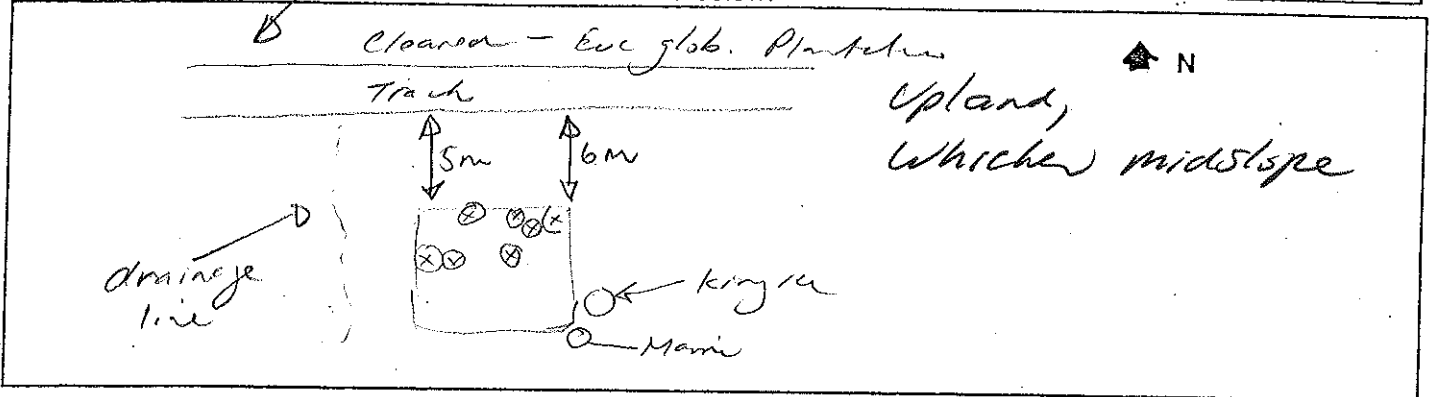 Cleared - Euc glob. Plantation
N
Track
Upland,
Whicher midslope
5m
6m
drainage
line
Kingia
Marri